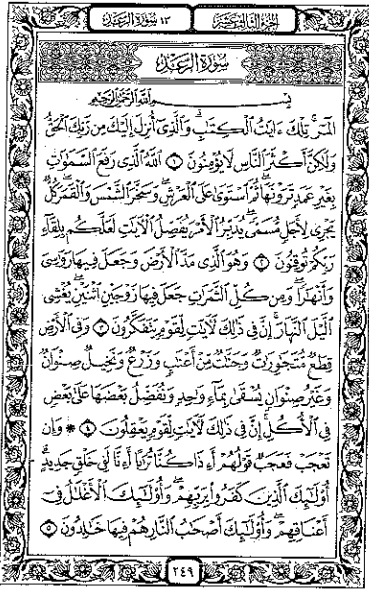 الجزء الثالث عشر ١٣ سورة الرعد
سورة الرعد
بِسْمِ اللَّهِ الرَّحْمَٰنِ الرَّحِيمِ
الٓمٓرۚ تِلْكَ ءَايَٰتُ ٱلْكِتَٰبِۗ وَٱلَّذِىٓ أُنزِلَ إِلَيْكَ مِن رَّبِّكَ ٱلْحَقُّ
وَلَٰكِنَّ أَكْثَرَ ٱلنَّاسِ لَا يُؤْمِنُونَ ١ ٱللَّهُ ٱلَّذِى رَفَعَ ٱلسَّمَٰوَٰتِ
بِغَيْرِ عَمَدٍ تَرَوْنَهَاۖ ثُمَّ ٱسْتَوَىٰ عَلَى ٱلْعَرْشِۖ وَسَخَّرَ ٱلشَّمْسَ وَٱلْقَمَرَۖ كُلٌّ
يَجْرِى لِأَجَلٍ مُّسَمًّىۚ يُدَبِّرُ ٱلْأَمْرَ يُفَصِّلُ ٱلْءَايَٰتِ لَعَلَّكُم بِلِقَآءِ
رَبِّكُمْ تُوقِنُونَ ٢ وَهُوَ ٱلَّذِى مَدَّ ٱلْأَرْضَ وَجَعَلَ فِيهَا رَوَٰسِىَ
وَأَنْهَٰرًاۖ وَمِن كُلِّ ٱلثَّمَرَٰتِ جَعَلَ فِيهَا زَوْجَيْنِ ٱثْنَيْنِۖ يُغْشِى
ٱلَّيْلَ ٱلنَّهَارَۚ إِنَّ فِى ذَٰلِكَ لَءَايَٰتٍ لِّقَوْمٍ يَتَفَكَّرُونَ ٣ وَفِى ٱلْأَرْضِ
قِطَعٌ مُّتَجَٰوِرَٰتٌ وَجَنَّٰتٌ مِّنْ أَعْنَٰبٍ وَزَرْعٌ وَنَخِيلٌ صِنْوَانٌ
وَغَيْرُ صِنْوَانٍ يُسْقَىٰ بِمَآءٍ وَٰحِدٍ وَنُفَضِّلُ بَعْضَهَا عَلَىٰ بَعْضٍ
فِى ٱلْأُكُلِۚ إِنَّ فِى ذَٰلِكَ لَءَايَٰتٍ لِّقَوْمٍ يَعْقِلُونَ ٤ ۞ وَإِن
تَعْجَبْ فَعَجَبٌ قَوْلُهُمْ أَءِذَا كُنَّا تُرَٰبًا أَءِنَّا لَفِى خَلْقٍ جَدِيدٍۗ
أُو۟لَٰٓئِكَ ٱلَّذِينَ كَفَرُوا۟ بِرَبِّهِمْۖ وَأُو۟لَٰٓئِكَ ٱلْأَغْلَٰلُ فِىٓ
أَعْنَاقِهِمْۖ وَأُو۟لَٰٓئِكَ أَصْحَٰبُ ٱلنَّارِۖ هُمْ فِيهَا خَٰلِدُونَ ٥
٢٤٩